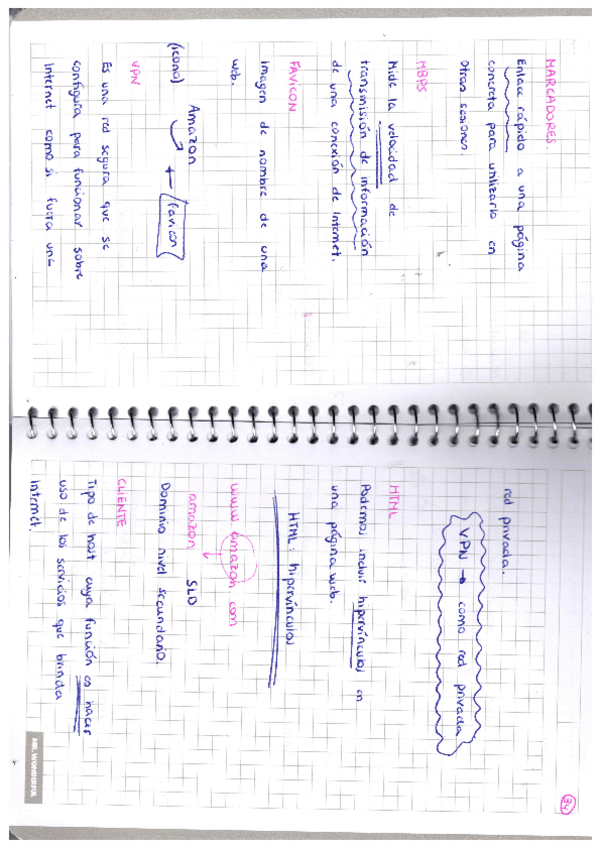 MARCADORES.
Enlace rápido a una página
concreta para utilizarlo en
otras sesiones.
MBPS
Mide la velocidad de
transmisión de información
de una conexión de Internet.
FAVICON
Imagen de nombre de una
web.
Amazon + favicon
(icono)
VPN
Es una red segura que se
configura para funcionar sobre
Internet como si fuera una
34
red privada.
VPN → como red privada
HTML
Podemos incluir hipervínculos en
una página web.
HTML: hipervínculos
www.amazon.com
amazon SLD
Dominio nivel secundario.
CLIENTE
Tipo de host cuya función es hacer
uso de los servicios que brinda
Internet.
MR. WONDERFUL